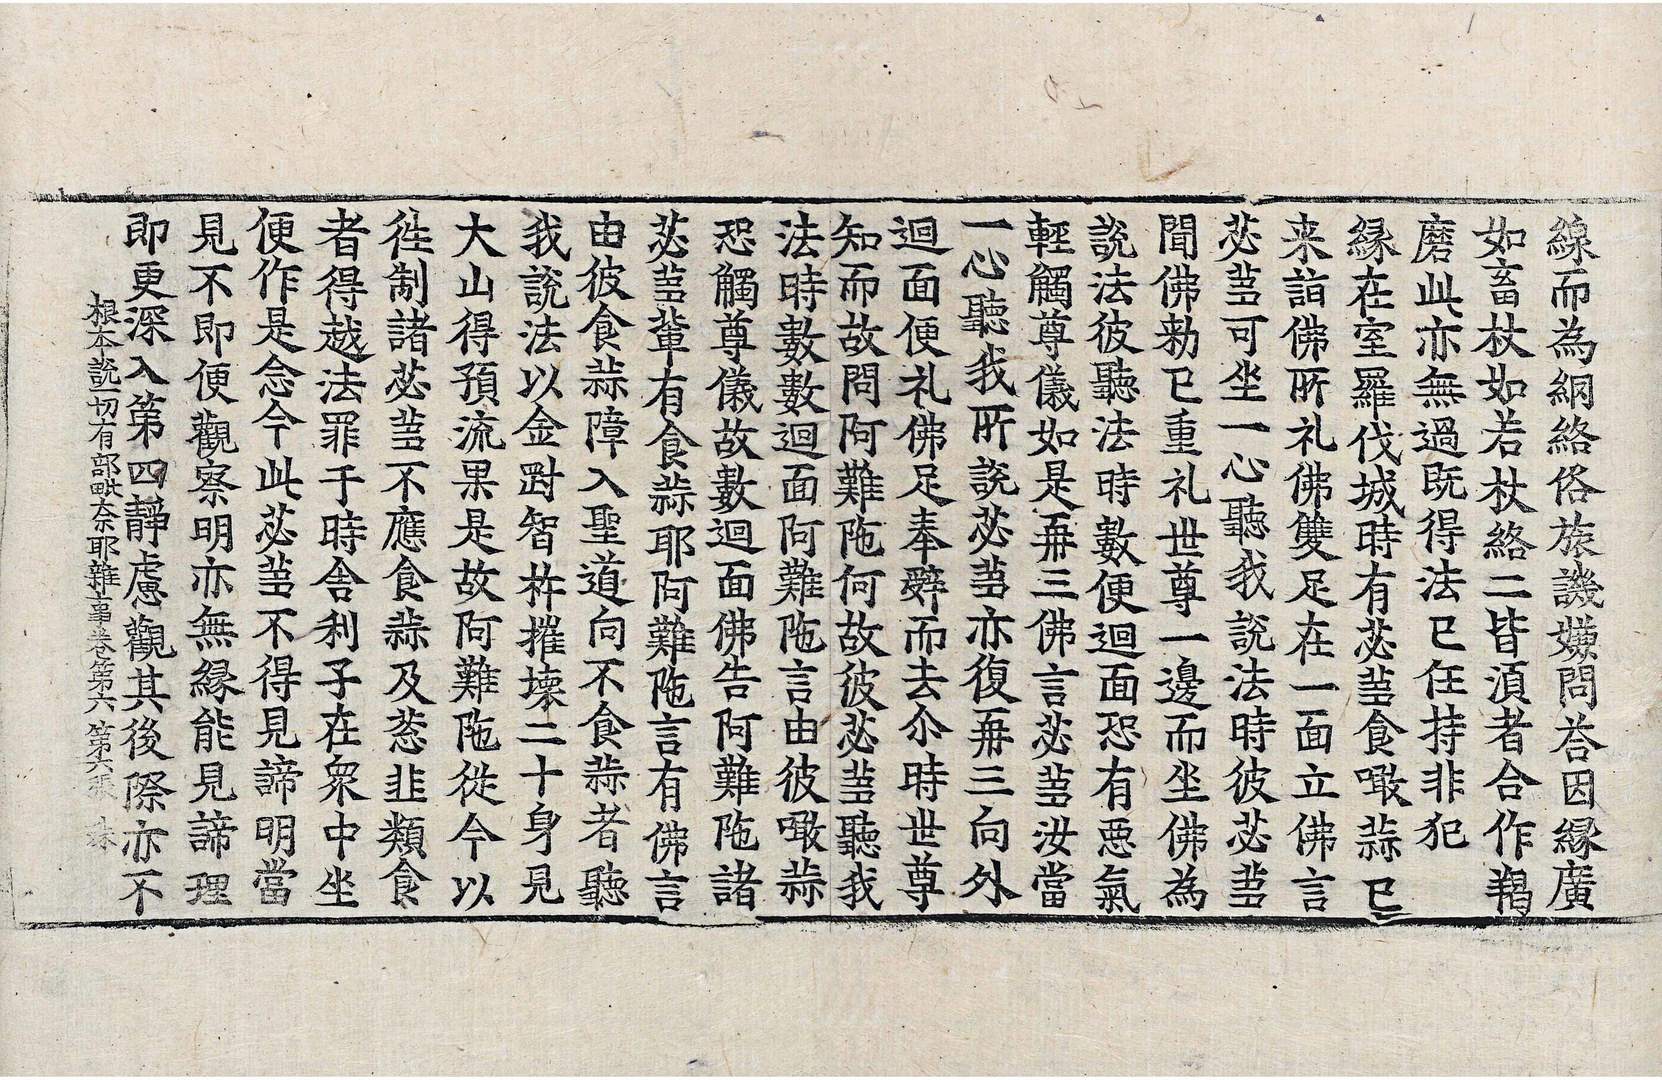 線而為網絡俗旅譏嫌問荅因緣廣
如畜杖如若杖絡二皆湏者合作羯
磨此亦無過既得法已任持非犯
緣在室羅伐城時有苾蒭食噉蒜已
来詣佛所礼佛雙足在一面立佛言
苾蒭可坐一心聽我說法時彼苾蒭
聞佛勑已重礼世尊一邊而坐佛為
說法彼聽法時數便迴面恐有惡氣
輕觸尊儀如是再三佛言苾蒭汝當
一心聽我所說苾蒭亦復再三向外
迴面便礼佛足奉辤而去尒時世尊
知而故問阿難陁何故彼苾蒭聽我
法時數數迴面阿難陁言由彼噉蒜
恐觸尊儀故數迴面佛告阿難陁諸
苾蒭軰有食蒜耶阿難陁言有佛言
由彼食蒜障入聖道向不食蒜者聽
我說法以金剛智杵摧壞二十身見
大山得預流果是故阿難陁從今以
徃制諸苾蒭不應食蒜及葱韭類食
者得越法罪于時舍利子在衆中坐
便作是念今此苾蒭不得見諦明當
見不即便觀察明亦無緣能見諦理
即更深入第四靜慮觀其後際亦不
根本說一切有部毗奈耶雜事卷第六 第六張